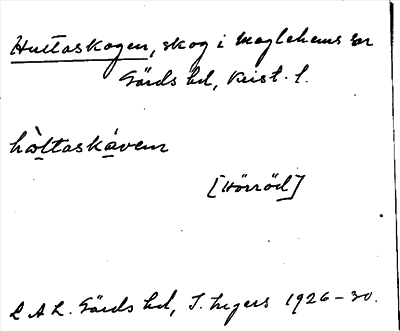 Huttaskogen, skog i Maglehems sn
Gärds hd, Krist. l.
hòltaskáven
[Hörröd]
L A L. Gärds hd, I. Ingers 1926-30.